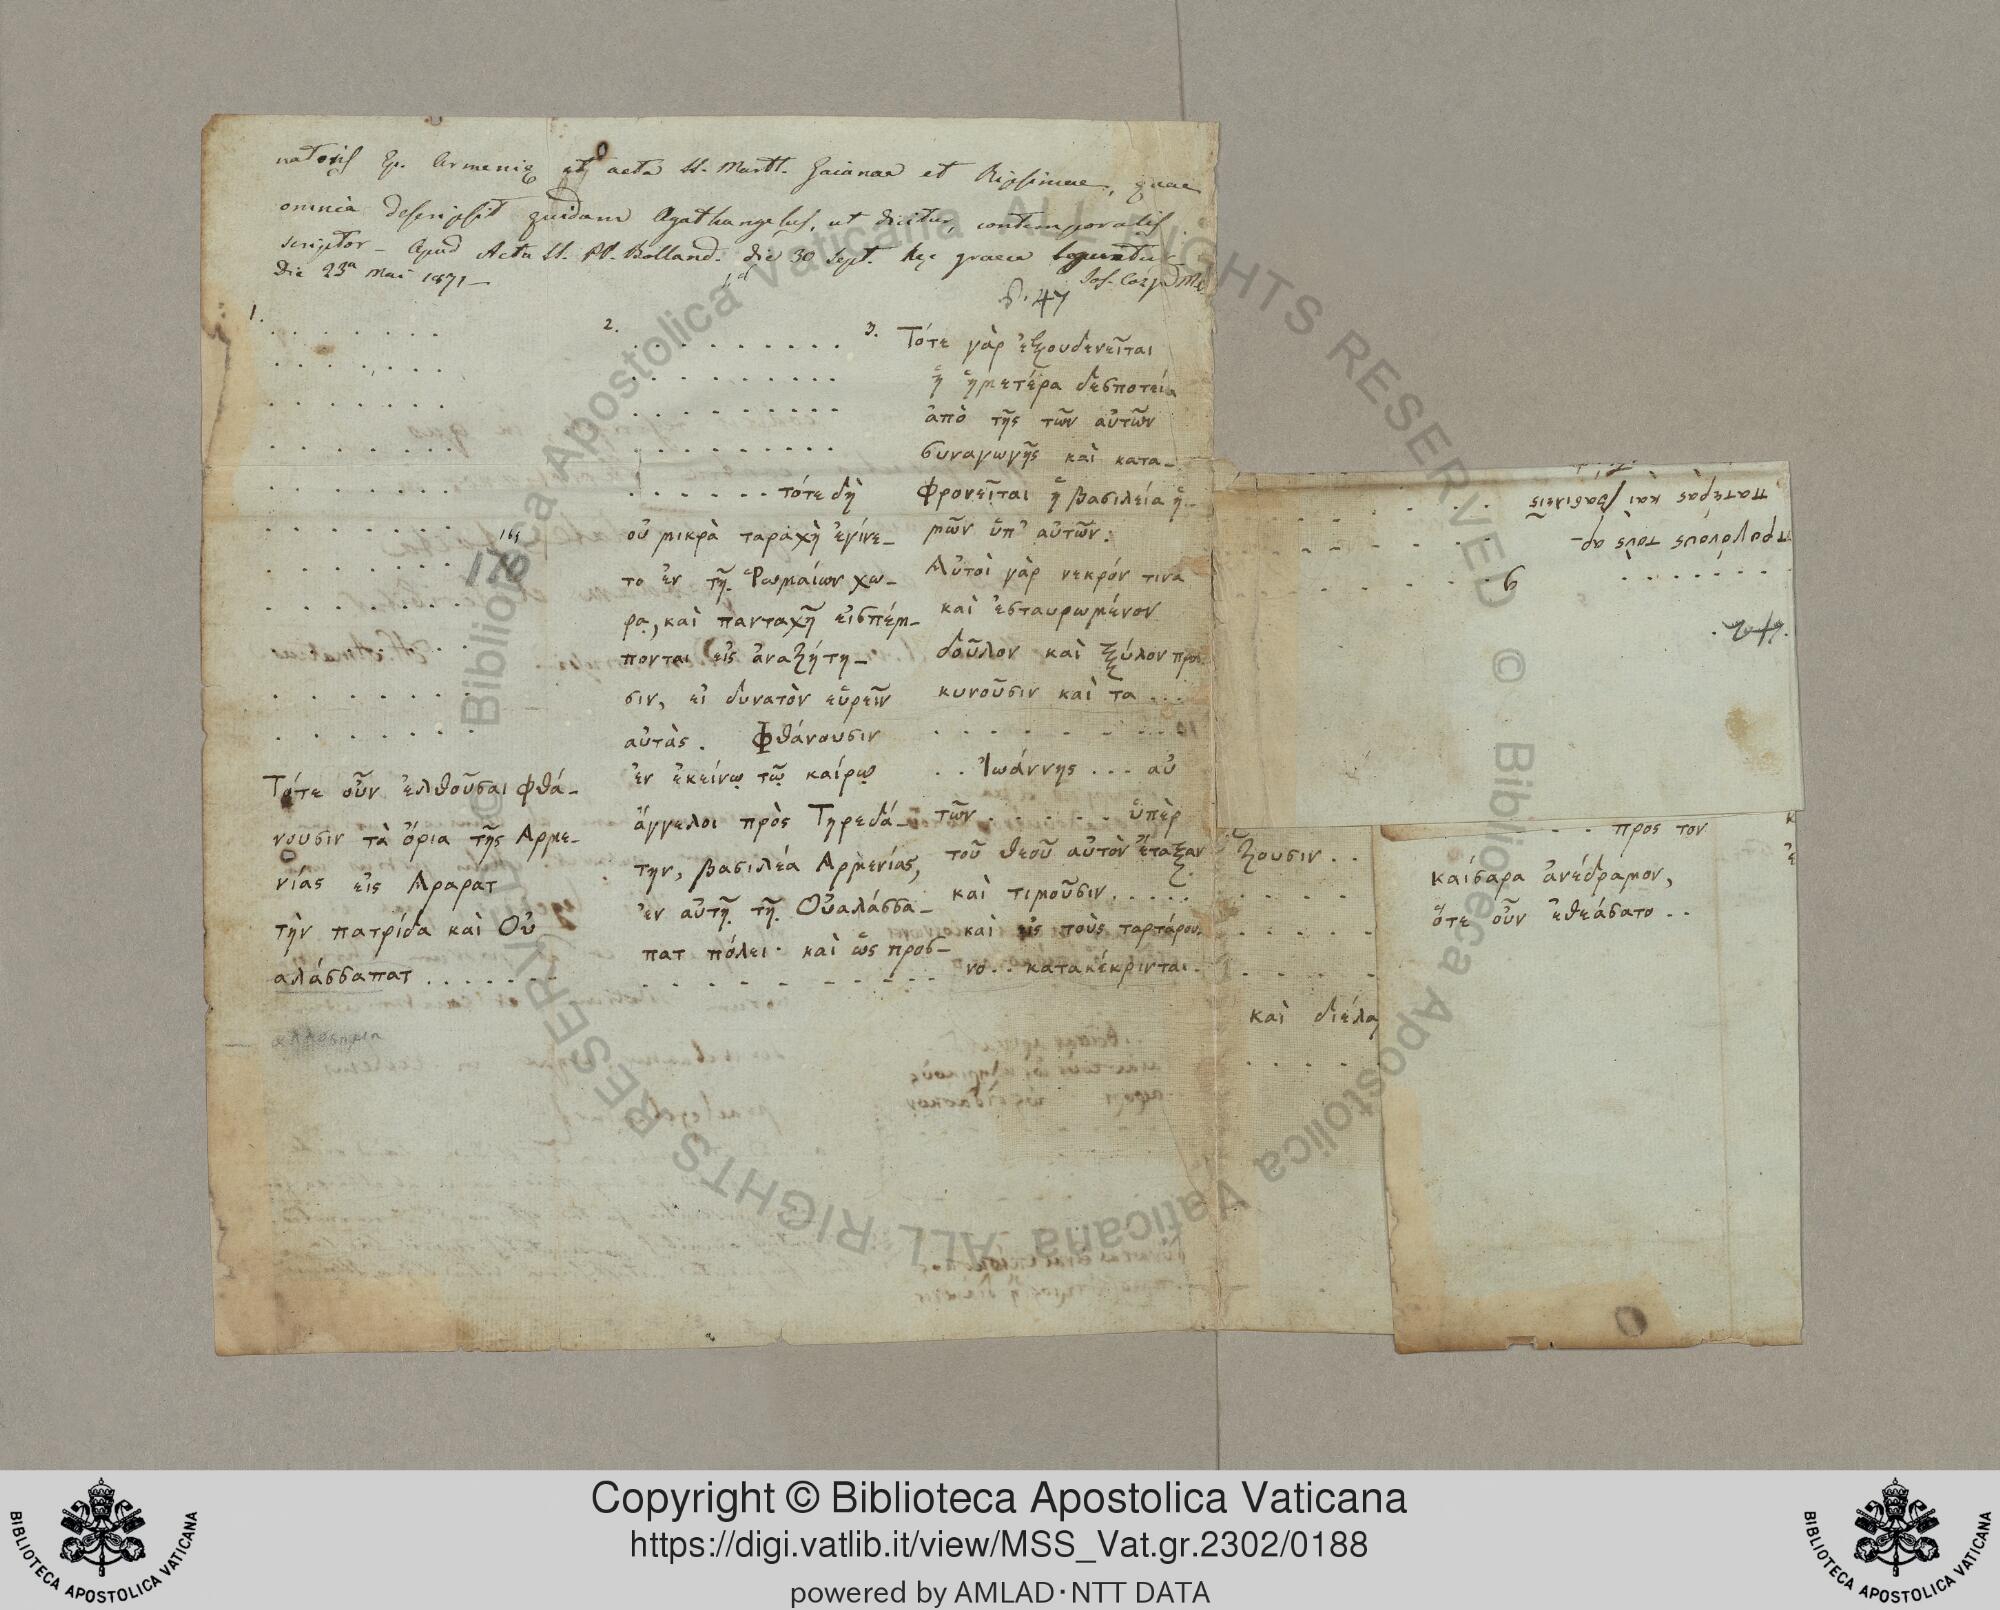 natoris Ep. Armenię et acta SS. Martt. Gaianae et Ripsimae, quae
omnia descripsit quidam Agathangelus, ut dicitur, contemporalis
scriptor – Apud Acta SS. PP. Bolland. die 30 Sept. hęc graece leguntur
Die 23ª Mai 1871 –
p. 47
1.
Τότε οὖν ἐλθοῦσαι φθά–
νουσιν τὰ ὅρια τῆς Αρμε–
νίας εἰς Αραρατ
τὴν πατρίδα καὶ Οὐ–
αλάσσαπατ . . . . . . .
2.
. . . . . . τότε δὴ
οὐ μικρὰ ταραχὴ ἐγίνε–
το ἐν τῇ Ῥωμαίων χω–
ρᾳ, καὶ πανταχῆ εἰσπέμ–
πονται εἰς ἀναζήτη–
σιν, εἰ δυνατὸν εὑρεῖν
αὐτὰς. Φθάνουσιν
ἐν ἐκείνῳ τῷ καίρῳ
ἄγγελοι πρὸς Τηρεδά–
την, βασιλέα Αρμενίας,
ἐν αὐτῇ τῇ Οὐαλάσσα–
πατ πόλει· καὶ ὣς προσ–
3. Τότε γὰρ ἐξουδενεῖται
ἡ ἡμετέρα δεσποτεία
ἀπὸ τῆς τῶν αὐτῶν
συναγωγῆς καὶ κατα–
φρονεῖται ἡ βασιλεία ἡ–
μῶν ὑπ' αὐτῶν.
Αὐτοὶ γὰρ νεκρόν τινα
καὶ ἐσταυρωμένον
δοῦλον καὶ ξύλον προσ
κυνοῦσιν καὶ τα . . .
. . Ἰωάννης . . . αὐ
τῶν . . . . . . ὑπὲρ
τοῦ θεοῦ αὐτὸν ἔταξαν
καὶ τιμοῦσιν . . . . .
καὶ εἰς τοὺς ταρτάρου
νο . . κατακέκρινται.
ζουσιν . .
καὶ διέλα
. . . . προς τον
καίσαρα ἀνέδραμον,
ὅτε οὖν ἐθεάσατο . .
προγόνους τοὺς αρ–
πατέρας καὶ βασιλεῖς
Copyright © Biblioteca Apostolica Vaticana
https://digi.vatlib.it/view/MSS_Vat.gr.2302/0188
powered by AMLAD·NTT DATA
BIBLIOTECA APOSTOLICA VATICANA
BIBLIOTECA APOSTOLICA VATICANA
© Biblioteca Apostolica Vaticana ALL RIGHTS RESERVED
© Biblioteca Apostolica Vaticana ALL RIGHTS RESERVED